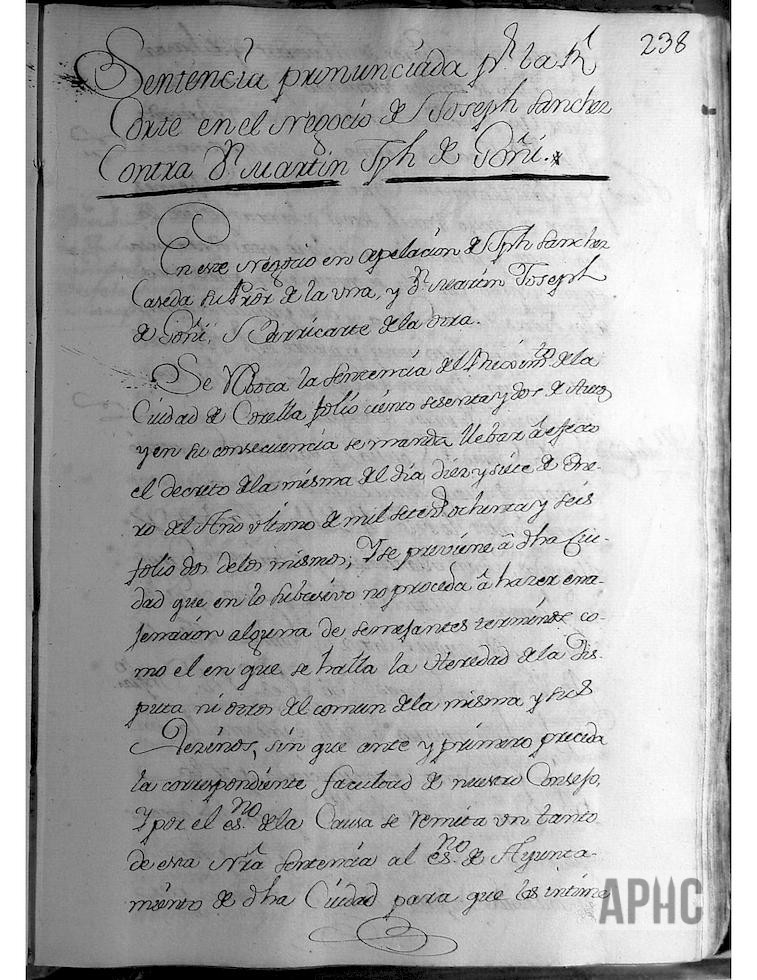 238
Sentencia pronunciada pr. la Rl.
Corte en el Negocio de Joseph Sanchez
Contra Dn. Martin Jph de Goñi.
En este Negocio en apelacion de Jph Sanchez
Caseda su Pror. de la una, y dn. Martin Joseph
de Goñi, Navricarte de la otra.
Se Reboca la sentencia del Aiuntmto. de la
Ciudad de Corella folio ciento sesenta y dos de Autos
y en su consecuencia se manda llebar â efecto
el decreto de la misma del dia diez y siete de Ene-
ro del Año ultimo de mil setecs. ochenta y seis
folio dos de los mismos; Y se previene â dha Ciu-
dad que en lo subcesivo no proceda â hazer ena-
jenacion alguna de semejantes terminos co-
mo el en que se halla la Heredad de la Dis-
puta ni otros del comun de la misma y sus
Vezinos, sin que ante y primero preceda
la correspondiente facultad de nuestro Consejo,
Y por el esno. de la Causa se remita un tanto
de esta Nra Sentencia al esno. de Ayunta-
miento de dha Ciudad para que las intime
APHC